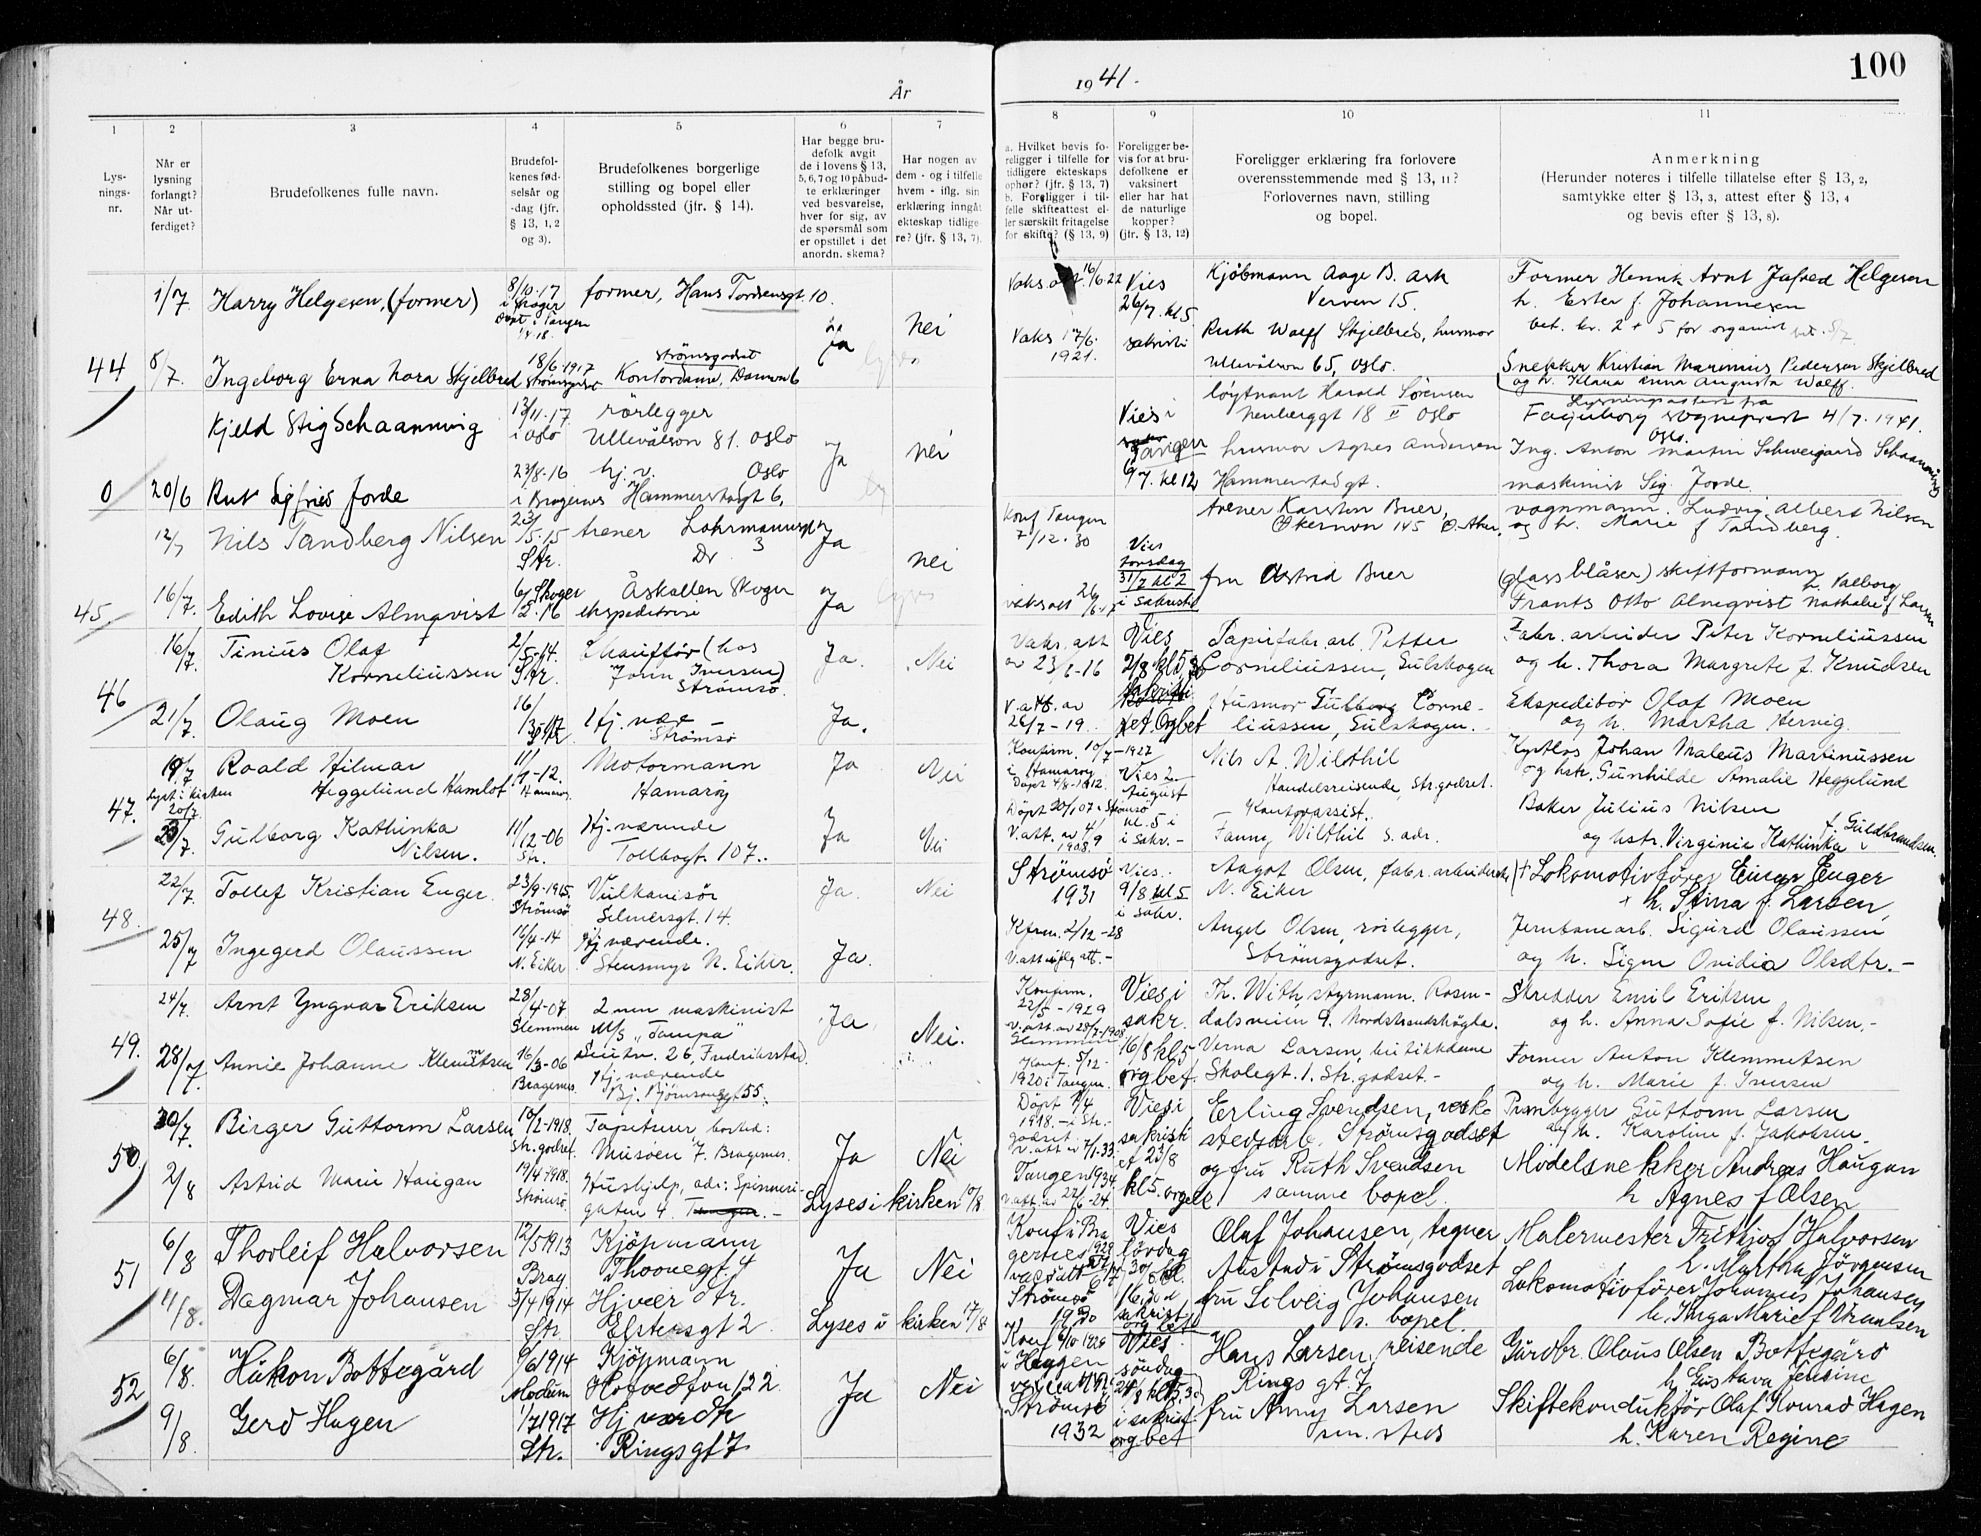 100
År
1941.
1
2
3
4
5
6
7
8
9
10
11
Lys-
nings-
nr.
Når er
lysning
forlangt?
Når ut-
ferdiget?
Brudefolkenes fulle navn.
Brudefol-
kenes fød-
selsår og
-dag (jfr.
§ 13, 1, 2
og 3).
Brudefolkenes borgerlige
stilling og bopel eller
opholdssted (jfr. § 14).
Har begge bru-
defolk avgit
de i lovens § 13,
5, 6, 7 og 10 påbud-
te erklæringer
ved besvarelse,
hver for sig, av
de spørsmål som
er opstillet i det
anordn. skema?
Har nogen av
dem - og i tilfelle
hvem - iflg. sin
erklæring inngåt
ekteskap tidlige-
re? (jfr. § 13, 7).
a. Hvilket bevis fo-
religger i tilfelle for
tidligere ekteskaps
ophør? (jfr. § 13, 7)
b. Foreligger i til-
felle skifteattest el-
ler særskilt fritagelse
for skifte? (§ 13, 9)
Foreligger be-
vis for at bru-
defolkene er
vaksinert
eller har hat
de naturlige
kopper?
(jfr. § 13, 12)
Foreligger erklæring fra forlovere
overensstemmende med § 13, 11?
Forlovernes navn, stilling
og bopel.
Anmerkning
(Herunder noteres i tilfelle tillatelse efter § 13, 2,
samtykke efter § 13, 3, attest efter § 13, 4
og bevis efter § 13, 8).
1/7 Harry Helgesen, (former)
8/10.17
former, Hans Tordsensgt 10.
Ja
nei
16/6.22
Vies
26/7. kl 5
Kjøbmann Aage B. Ask
Verven 15.
Former Henrik Arnt Jafred Helgesen
h. Ester f. Johannesen
bet. kr. 2 + 5 for organist
44
8/7.
Ingeborg Erna Nora Skjelbred
18/6.1917
Strømsgodset
Strømsgodset
Kontordame, Damven 6
Vaks 17/6.
1921.
sakristi
Ruth Wolff Skjelbred, husmor
Ullevålsvn 65, Oslo.
Snekker Kristian Marinius Pedersen Skjelbred
og h. Klara Anna Augusta Wolff.
Kjeld Stig Schaanning
13/11.17
i Oslo
rørlegger
Ullevålsvn 81. Oslo
Ja
nei
Vies i
Tangen
6/7. kl 12
løytnant Harald Sørensen
18 II Oslo
husmor Agnes Andersen
Hammerstadgt.
Lysningsattest fra
Fagerborg sogneprest 4/7. 1941.
Oslo.
Ing. Anton Martin Schweigaard Schaanning
maskinist Sig. Jorde.
0
20/6
Rut Sigfried Jorde
23/8-16
i Bragernes
hj. v. Oslo
Hammerstadgt 6,
12/7
Nils Tandberg Nilsen
23/5.15
Str.
trener Lohrmannsgt
Dr 3
Ja
nei
Konf Tangen
7/12.30
Vies
torsdag
31/7 kl 2
i sakristi
trener Karsten Buer,
Økernvn 145 Ø. Aker.
fru Astrid Buer
vognmann. Ludvig Albert Nilsen
og h. Marie f Tandberg.
45.
16/7.
Edith Lovise Almqvist
6/ Skoger
12.16
Åskollen Skoger
ekspeditrise
Ja
(glassblåser) skiftformann
Frants Otto Almqvist
16/7.
Tinius Olaf
Korneliussen
2/5-14.
Str.
Chauffør (hos
John Iversen)
Strømsø.
Ja.
Nei
Vaks. att
av 23/6-16
Vies
2/8 kl 5,30
Sakristi
Papirfabr.arb. Petter
Corneliussen, Gulskogen
Fabr. arbeider Peter Korneliussen
og h. Thora Margrete f. Knudsen
46
21/7.
Olaug Moen
16/3-17
Str
Hj. vær. –
Strømsø
Ja.
V. att. av
26/7-19.
Husmor Gulborg Corne-
liussen, Gulskogen.
Ekspeditør Olaf Moen
og h. Martha Hervig.
19/7
Lyst i kirken
20/7
Roald Hilmar
Heggelund Hamlot
11/1-12.
Hamarøy
Motormann
Hamarøy
Ja
Nei
Konfirm. 10/7-1927
i Hamarøy
Døpt 4/8-1912
Vies 2.
August
kl. 5 i
i sakr. –
Nils A. Wilthil
Handelsreisende, Str.godset.
Johan Maleus Martinussen
og hstr. Gunhilde Amalie Heggelund
47.
23/7.
Gulborg Kathinka
Nilsen.
11/12-06
Str.
Hj. værende
Tollbogt. 107.
Ja
Nei
Kontorassist.
Fanny Wilthil s. adr.
Baker Julius Nilsen
og hstr. Virginia Kathinka f. Guldbrandsen.
22/7.
Tollef Kristian Enger.
23/9-1915.
Strømsø
Vulkanisør
Selmersgt. 14.
Ja
Nei
Strømsø
1931
Vies.
9/8 kl 5
i sakr.
Aagot Olsen, fabr. arbeiderske
N. Eiker
+ Lokomotivfører Einar Enger
+ h. Stina f. Larsen,
48.
25/7
Ingegerd Olaussen
16/4-14
N. Eiker
Hj. værende.
Stensmyr N. Eiker.
Ja.
Kfrm. 2/12-28
Angel Olsen, rørlegger,
Strømsgodset.
Jernbanearb. Sigurd Olaussen
og h. Signe Ovidia Olsdtr. –
24/7.
Arnt Yngvar Eriksen
28/4-07.
Slemmen
2nen maskinist
M/S "Tampa"
26, Fredriksstad
Ja
Nei.
Konfirm.
22/5-1929
Vies i
sakr.
16/8 kl 5
org bet.
Th. With, styrmann. Rosen-
dalsveien 9. Nordstrandshøgda.
Skredder Emil Eriksen
og h. Anna Sofie f. Nilsen. –
49.
28/7.
Annie Johanne Klemmetsen
16/3-06
Bragernes
Hj. værende
Bj. Bjørnsonsgt 55.
Konf. 5/12-
1920 i Tangen.
Verna Larsen, butikkdame
Skolegt. 1. Str.godset –
Former Anton Klemmetsen
og h. Marie f. Iversen
30/7.
Birger Guttorm Larsen
10/2-1918.
Str.godset.
Tapetserer bosted:
Museen 7. Bragernes.
Ja
Nei
Døpt 1/4
1918. – i Str.
godset.
Vies i
sakristi
23/8
kl 5. orgel
Erling Svendsen, verk-
stedsarb. Strømsgodset
Guttorm Larsen
og h. Karoline f. Jakobsen.
50.
2/8
Astrid Marie Haugan
19/4-1918.
Strømsø.
Hushjelp, adr: Spinneri-
gaten 4. Tangen. –
Lyses i kirken 10/8
Tangen 1934.
og fru Ruth Svendsen
samme bopel.
Modelsnekker Andreas Haugan
h Agnes f Olsen
6/8
Thorleif Halvorsen
12/5 1913
Brag
Kjöpmann
Thornegt. 4
Ja
Nei
Konf i Bra
gernes 1928
Vies
lördag
Olaf Johansen, tegner
Austadv Strømsgodset
Malermester Fritjof Halvorsen
h. Martha Jörgensen
51
11/8.
Dagmar Johansen
5/4 1914
Str.
Hj vær Str.
Elstersgt 2
Lyses i kirken 17/8
Strømsø
sakristi
org bet
fru Solveig Johansen
s. bopel.
Lokomotivförer Johannes Johansen
h. Inga Marie f Vraalsen
6/8.
Håkon Bottegård
9/6 1914
Modum
Kjöpmann
Hotvedtvn 122
Ja
Nei
Konf 6/10 1929
i Haugen
Vies
söndag
Hans Larsen, reisende
Rings gt 7
Gårdbr. Olaus Olsen Bottegård
h. Gustava Jensine
52
9/8.
Gerd Hagen
1/7 1917
Str.
Hj vær Str
Ringsgt 7
Strømsø
1932
i sakrist.
org bet
fru Anny Larsen
sm. sted
Skiftekonduktör Olaf Konrad Hagen
h. Karen Regine